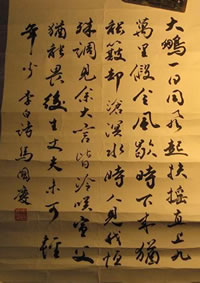 大鵬一日同風起扶摇直上九
萬里假令風歇時下来猶
能簸却滄溟水時人見我恒
殊調見余大言皆冷笑宣父
猶能畏後生丈夫未可輕
年少 李白诗 馬國慶